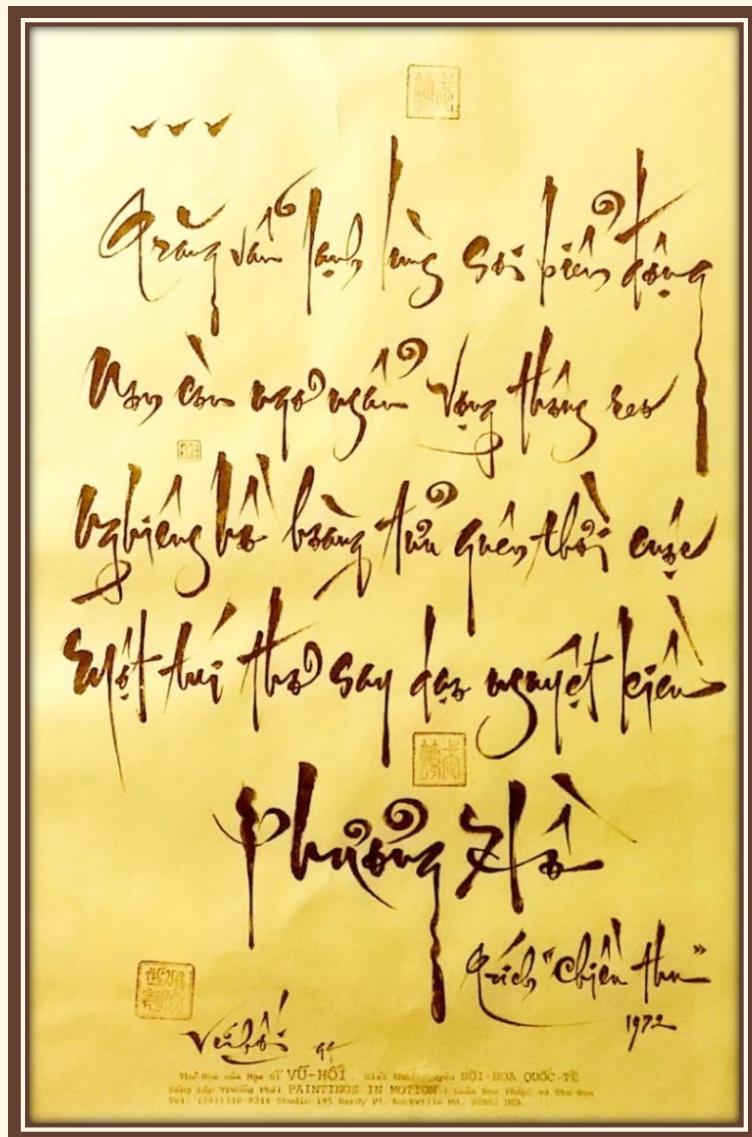 Trăng vẩn lạnh lùng soi biển động
Non còn ngơ ngẩn vọng thông reo
Nghiêng hồ hoàng tửu quên thời cuộc
Một túi thơ say dạo nguyệt kiều
Hồ
Trích "Chiều thu"
1972
Vũ Hối
Thư Họa của Họa sĩ VŨ-HỐI, Giải Khôi Nguyên HỘI-HỌA QUỐC-TẾ
Sáng Lập Trường Phái PAINTINGS IN MOTION ( Họa Pháp) và Thư Họa
Tel: Studio:195 Hardy Pl. Rockville Md. USA.